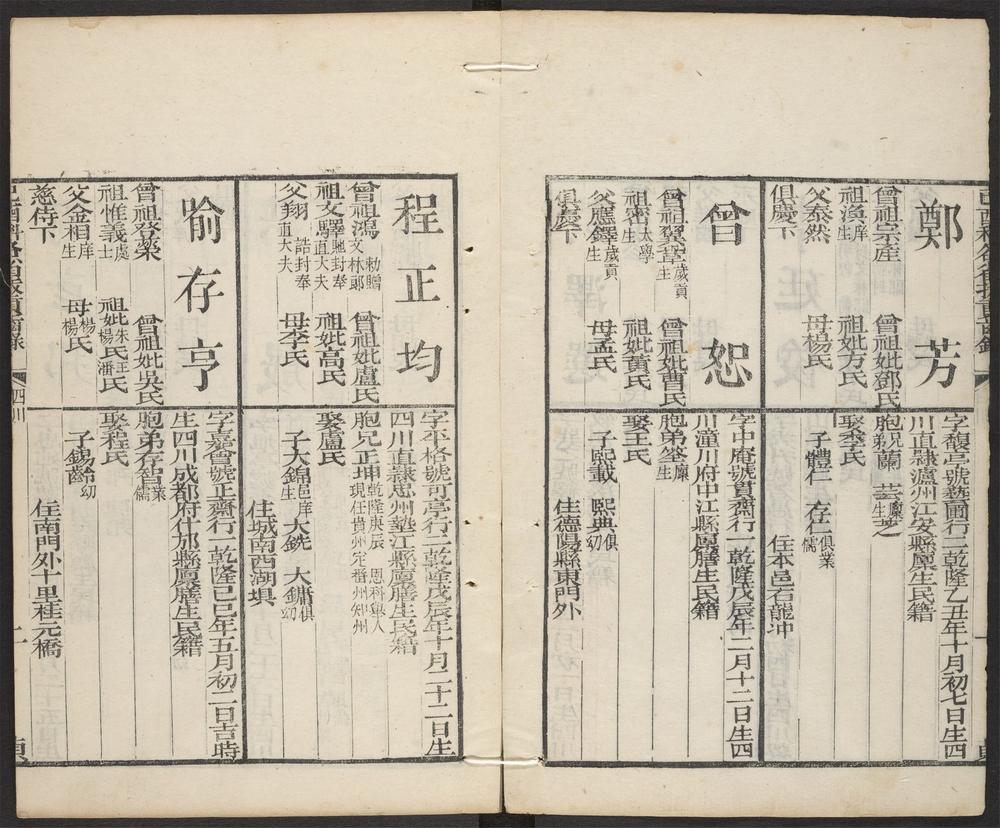 鄭芳
曾祖宗產 曾祖妣鄧氏
祖漁庠生 祖妣方氏
父泰然 母楊氏
俱慶下
字馥亭號藝圃行二乾隆乙丑年十月初七日生四
川直隸瀘州江安縣廩生民籍
胞兄蘭 芸廩生
娶李氏
子體仁 存仁俱業儒
住本邑石龍冲
曾恕
曾祖翼章歲貢生 曾祖妣曹氏
祖 太學生 祖妣黃氏
父應鐸歲貢生 母孟氏
俱慶下
字中庵號貫齋行一乾隆戊辰年二月十二日生四
川潼川府中江縣廩膳生民籍
胞弟 廩生
娶王氏
子熙載 熙典俱幼
住德陽縣東門外
程正均
曾祖鴻勅贈文林郎 曾祖妣盧氏
祖文驛馳封奉直大夫 祖妣高氏
父翔誥封奉直大夫 母李氏
字平格號可亭行二乾隆戊辰年十月二十二日生
四川直隸忠州墊江縣廩膳生民籍
胞兄正坤乾隆庚辰恩科舉人現任貴州定番州知州
娶盧氏
子大錦邑庠生 大銑 大鏞俱幼
住城南西湖垻
喻存亨
曾祖登榮 曾祖妣吳氏
祖惟義處士 祖妣朱王楊潘氏
父金相庠生 母楊楊氏
慈侍下
字嘉會號正齋行一乾隆己巳年五月初二日吉時
生四川成都府什邡縣廩膳生民籍
胞弟存智業儒
娶程氏
子錫齡幼
住南門外十里桂元橋
四川